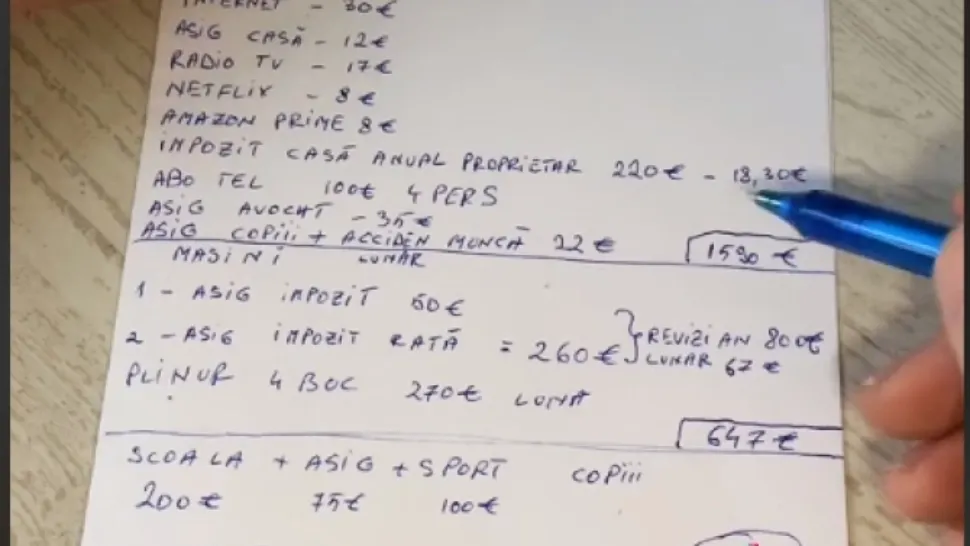 INTERNET - 30€
ASIG CASĂ - 12€
RADIO TV - 17€
NETFLIX - 8€
AMAZON PRIME 8€
IMPOZIT CASĂ ANUAL PROPRIETAR 220€ - 18,30€
ABO TEL 100€ 4 PERS
ASIG AVOCAT - 35€
ASIG COPIII + ACCIDEN MUNCĂ 22€
1590€
MASINI LUNAR
1 - ASIG IMPOZIT 50€
2 - ASIG IMPOZIT RATĂ = 260€ } REVIZI AN 800€
LUNAR 67€
PLINUR 4 BUC 270€ LUNA
647€
SCOALA + ASIG + SPORT COPIII
200€ 75€ 100€